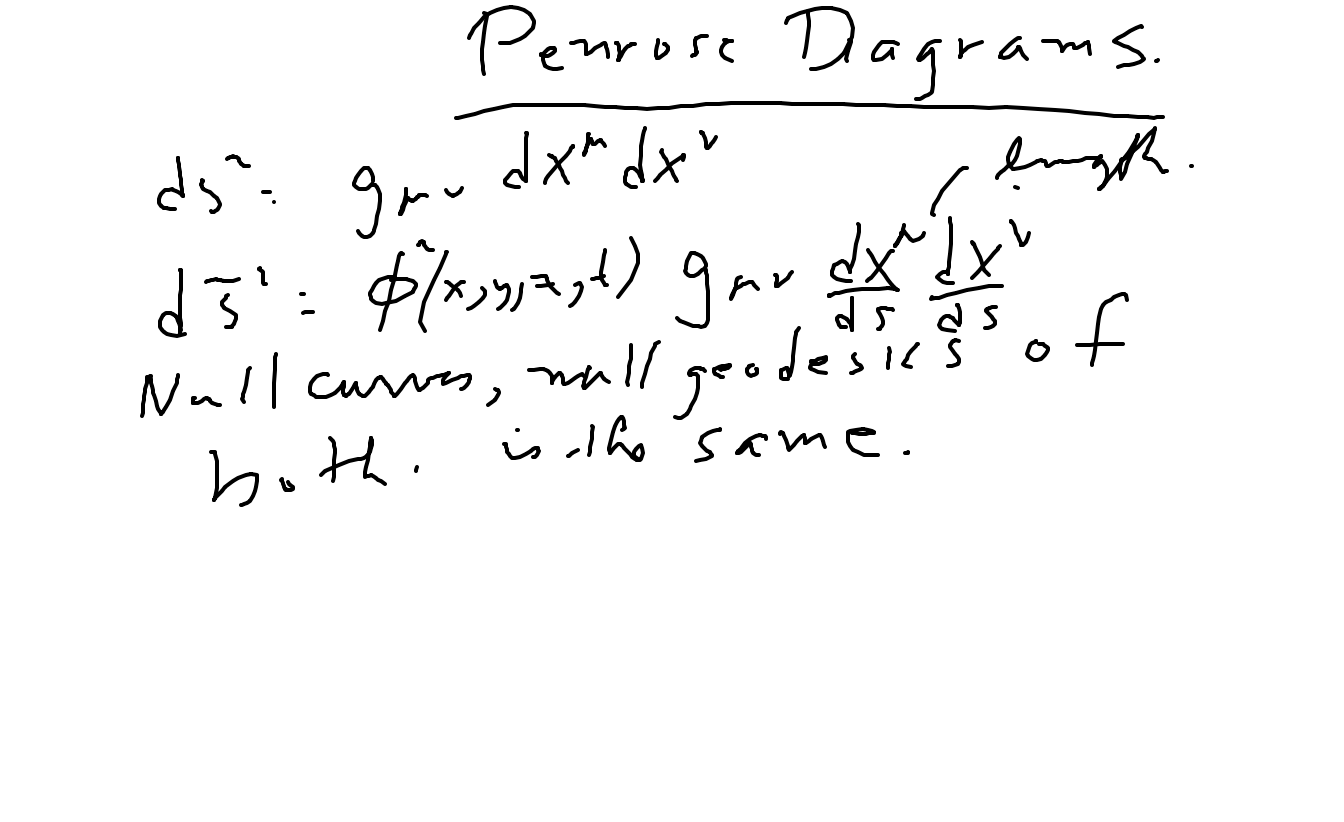 Penrose Dagrams.
ds² = g_μν dx^μ dx^ν
length.
ds̄² = ϕ²(x,y,z,t) g_μν dx^μ/ds dx^ν/ds
Null curves, null geodesics of
both. is the same.